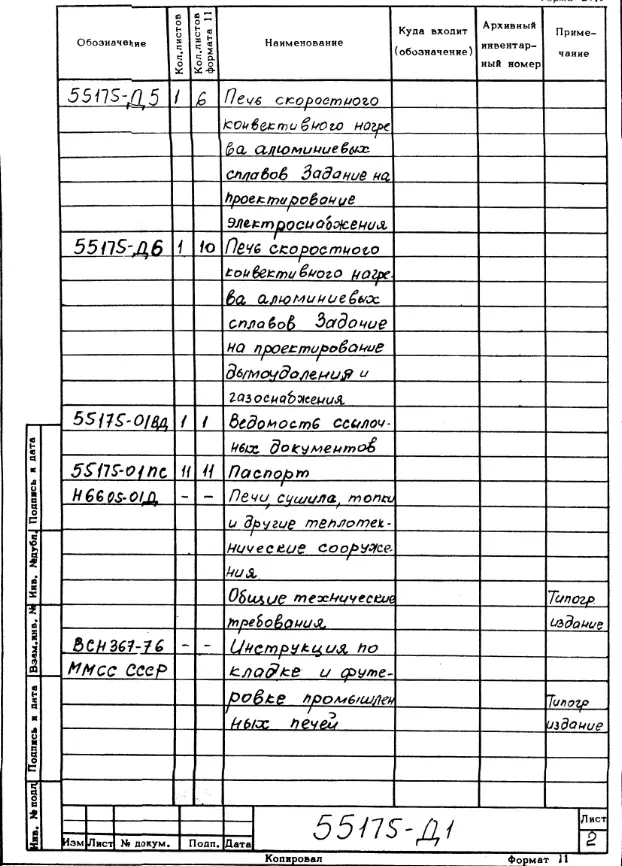 Обозначение Кол.листов Кол.листов формата 11 Наименование Куда входит (обозначение) Архивный инвентарный номер Примечание
55175-Д5 1 6 Печь скоростного
конвективного нагре
ва алюминиевых
сплавов Задание на
проектирование
электроснабжения
55175-Д6 1 10 Печь скоростного
конвективного нагре-
ва алюминиевых
сплавов Задание
на проектирование
дымоудаления и
газоснабжения
55175-01ВД 1 1 Ведомость ссылоч-
ных документов
55175-01ПС 11 11 Паспорт
Н6605-01Д - - Печи, сушила, топки
и другие теплотех-
нические сооруже-
ния
Общие технические Типогр.
требования издание
ВСН367-76 - - Инструкция по
ММСС СССР кладке и футе-
ровке промышлен Типогр
ных печей издание
Инв. № подл. Подпись и дата Взам.инв. № Инв. №дубл. Подпись и дата
55175-Д1
Лист
2
Изм Лист № докум. Подп. Дата
Копировал Формат 11